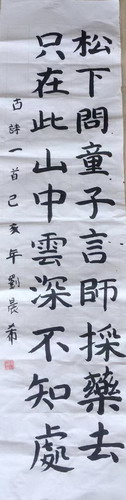 松下問童子言師採藥去
只在此山中雲深不知處
古詩一首己亥年劉晨希